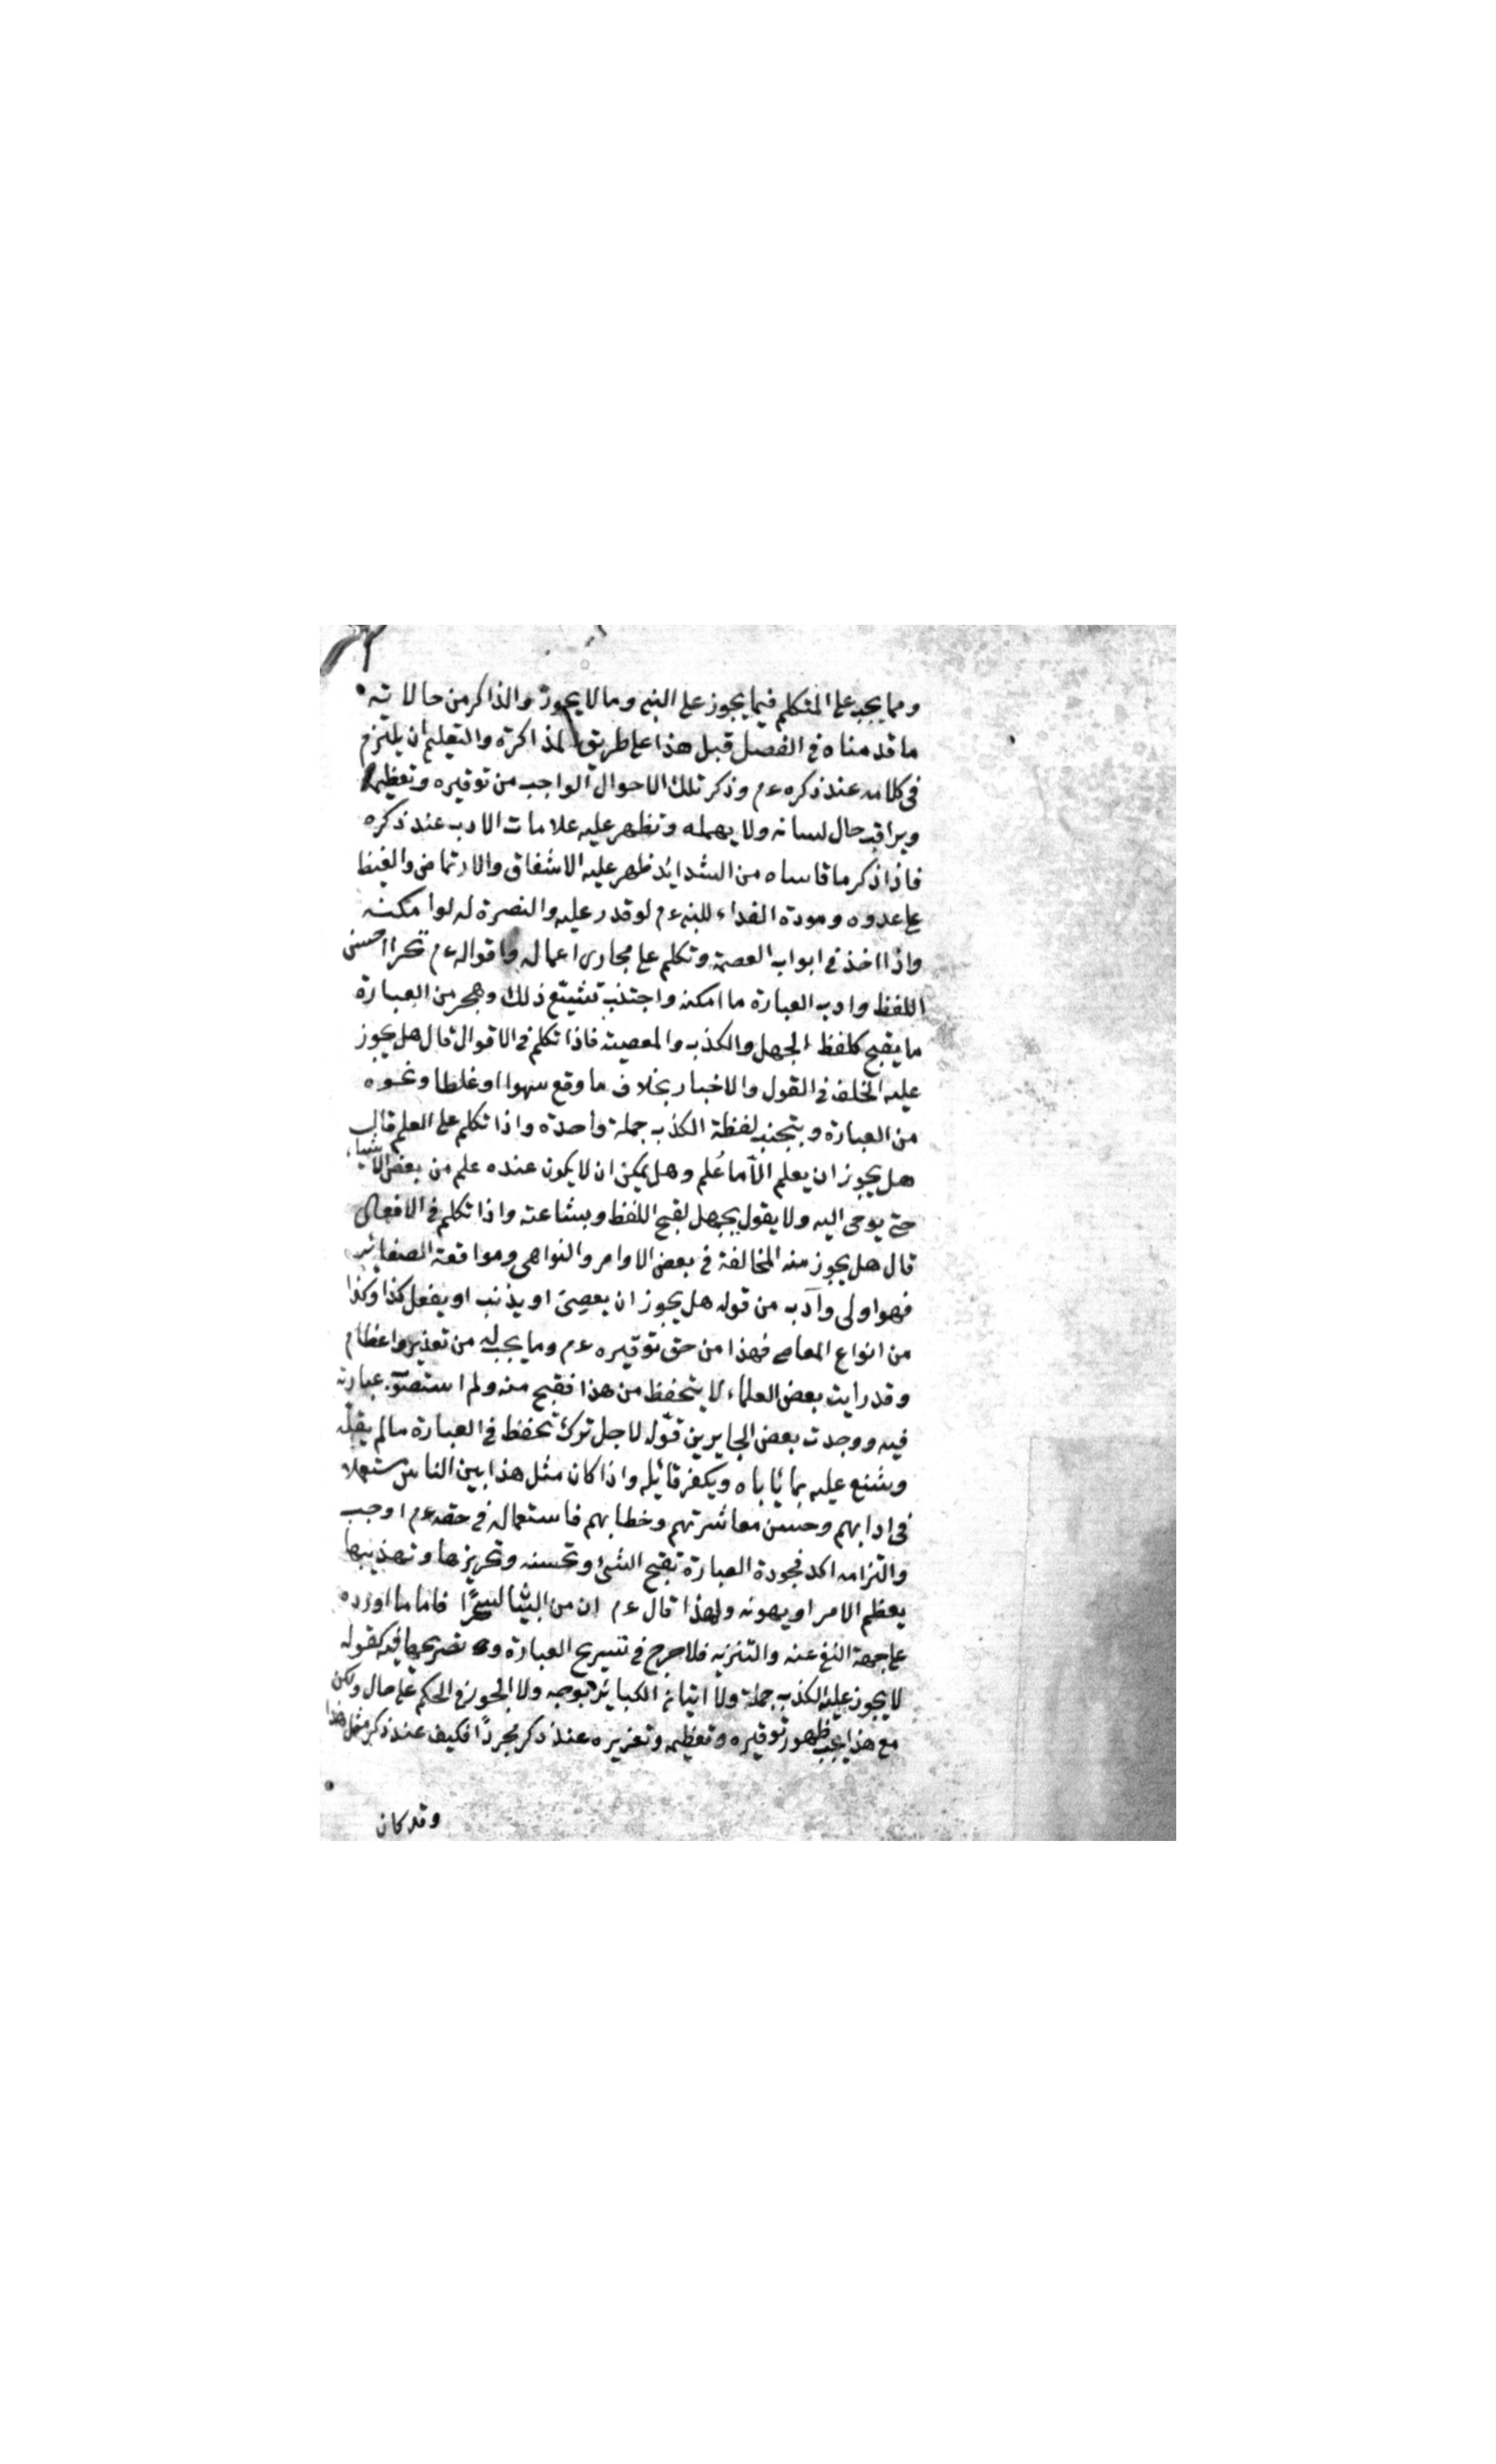 ومما يجب على المتكلم فيما يجوز على النبي وما لا يجوز والذاكر من حالاته
ما قدمناه في الفصل قبل هذا على طريق المذاكرة والتعليم ان يلتزم
في كلامه عند ذكره عم وذكر تلك الاحوال الواجب من توقيره وتعظيمه
ويراقب حال لسانه ولا يهمله وتظهر عليه علامات الادب عند ذكره
فاذا ذكر ما قاساه من الشدايد ظهر عليه الاشفاق والارتماض والغيظ
على عدوه ومودة الفداء للنبي عم لو قدر عليه والنصرة له لو امكنه
واذا اخذ في ابواب العصمة وتكلم على مجارى اعماله واقواله عم تحرا احسن
اللفظ وادب العبارة ما امكنه واجتنب تشيتع ذلك وهجر من العبارة
ما يقبح كلفظ الجهل والكذب والمعصية فاذا تكلم في الاقوال قال هل يجوز
عليه الخلف في القول والاخبار بخلاف ما وقع سهوا او غلطا ونحوه
من العبارة ويتجنب لفظة الكذب جملة واحدة واذا تكلم على العلم قال
هل يجوز ان يعلم الا ما عُلم وهل يمكن ان لا يكون عنده علم من بعض الاشياء
حتى يوحى اليه ولا يقول يجهل لقبح اللفظ وبشاعته واذا تكلم في الافعال
قال هل يجوز منه المخالفة في بعض الاوامر والنواهى ومواقعة الصغاير
فهو اولى وآدب من قوله هل يجوز ان يعصى او يذنب او يفعل كذا وكذا
من انواع المعاصي فهذا من حق توقيره عم وما يجب له من تعزير واعظام
وقد رايت بعض العلماء لا يتحفظ من هذا فقبح منه ولم استصوب عبارته
فيه ووجدت بعض الجايرين قوّله لاجل ترك تحفظ في العبارة ما لم يقله
وشنع عليه بما ياباه ويكفر قائله واذا كان مثل هذا بين الناس مستعملا
في ادابهم وحسن معاشرتهم وخطابهم فاستعماله في حقه عم اوجب
والتزامه اكد فجودة العبارة تقبح الشئ وتحسنه وتحريرها وتهذيبها
يعظم الامر او يهونه ولهذا قال عم ان من البيان لسحرًا فاما ما اورده
على جهة النفي عنه والتنزيه فلا حرج في تسريح العبارة وتصريحها فيه كقوله
لا يجوز عليه الكذب جملة ولا اتيان الكبائر بوجه ولا الجور في الحكم على حال ولكن
مع هذا يجب ظهور توقيره وتعظيمه وتعزيره عند ذكره مجردًا فكيف عند ذكر مثل هذا
وقد كان